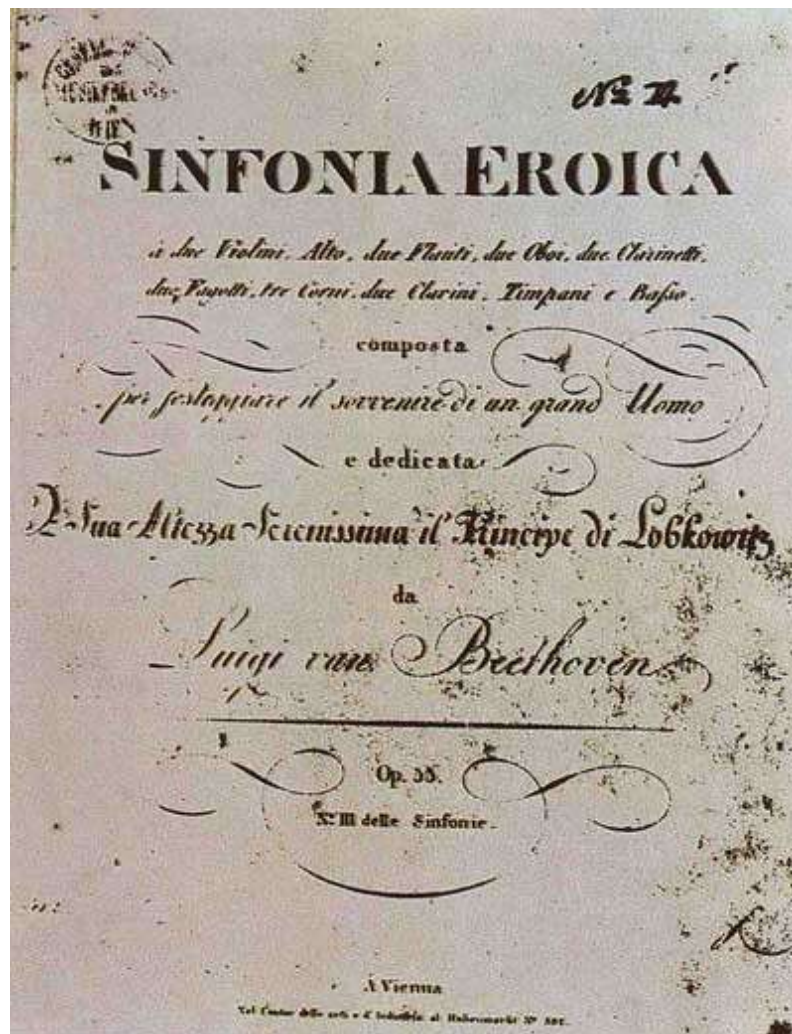 Nº II
SINFONIA EROICA
à due Violini, Alto, due Flauti, due Oboi, due Clarinetti,
due Fagotti, tre Corni, due Clarini, Timpani e Basso.
composta
per festeggiare il sovvenire di un grand Uomo
e dedicata
A Sua Altezza Serenissima il Principe di Lobkowitz
da
Luigi van Beethoven
Op. 55.
Nº III delle Sinfonie.
A Vienna
Nel Contor delle arti e d'Industria al Hohenmarkt Nº 582.